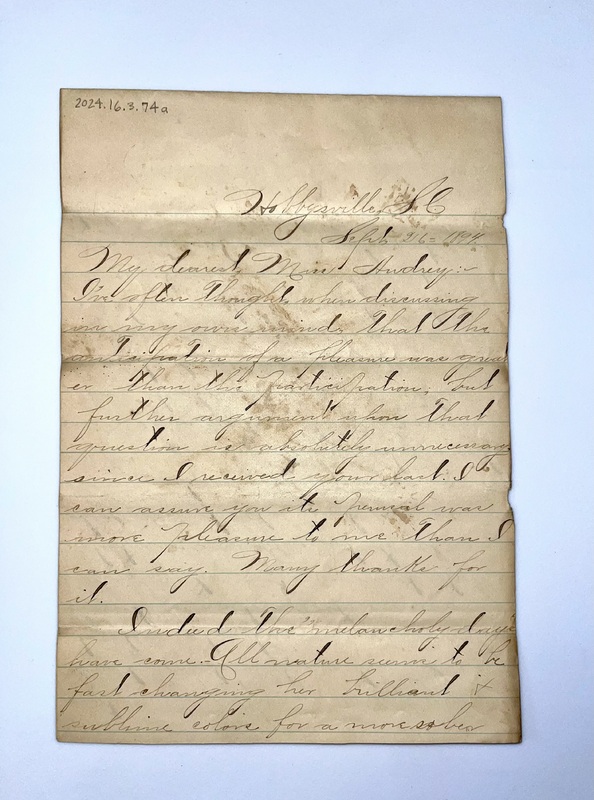 2024.16.3.74a
Hobbysville, S.C
Sept. 26=
My dearest Miss Audrey:-
I've often thought, when discussing
in my own mind, that the
anticipation of a pleasure was great
er than the participation; but
further argument upon that
question is absolutely unnecessary
since I received your last. I
can assure you its perusal was
more pleasure to me than I
can say. Many thanks for
it.
Indeed the "melancholy days"
have come. All nature seems to be
fast changing her brilliant &
sublime colors for a more sober